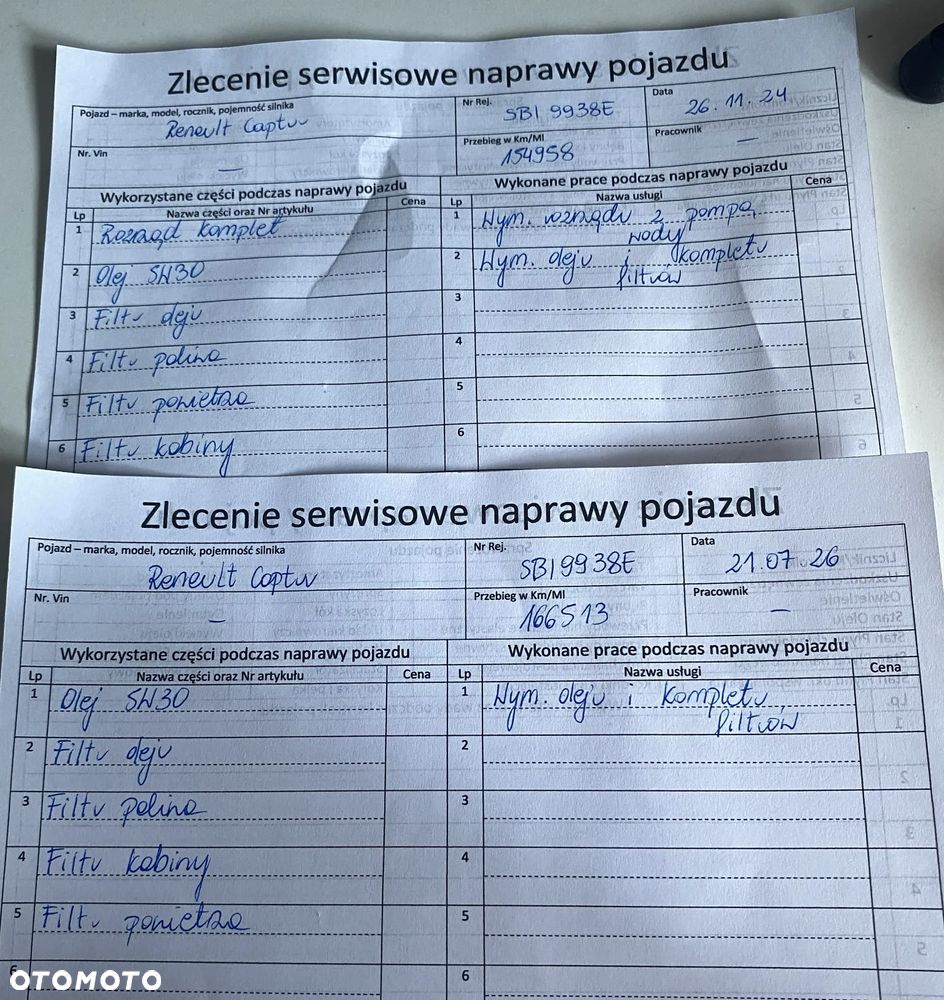 Zlecenie serwisowe naprawy pojazdu
Pojazd – marka, model, rocznik, pojemność silnika
Renault Captur
Nr Rej.
SBI 9938E
Data
26.11.24
Nr. Vin
—
Przebieg w Km/MI
154958
Pracownik
—
Wykorzystane części podczas naprawy pojazdu
Wykonane prace podczas naprawy pojazdu
Lp Nazwa części oraz Nr artykułu Cena
Lp Nazwa usługi Cena
1 Rozrząd komplet
2 Olej 5W30
3 Filtr oleju
4 Filtr paliwa
5 Filtr powietrza
6 Filtr kabiny
1 Wym. rozrządu z pompą
wody
2 Wym. oleju i kompletu
filtrów
3
4
5
6
Zlecenie serwisowe naprawy pojazdu
Pojazd – marka, model, rocznik, pojemność silnika
Renault Captur
Nr Rej.
SBI 9938E
Data
21.07.26
Nr. Vin
—
Przebieg w Km/MI
166513
Pracownik
—
Wykorzystane części podczas naprawy pojazdu
Wykonane prace podczas naprawy pojazdu
Lp Nazwa części oraz Nr artykułu Cena
Lp Nazwa usługi Cena
1 Olej 5W30
2 Filtr oleju
3 Filtr paliwa
4 Filtr kabiny
5 Filtr powietrza
6
1 Wym. oleju i kompletu
filtrów
2
3
4
5
6
OTOMOTO